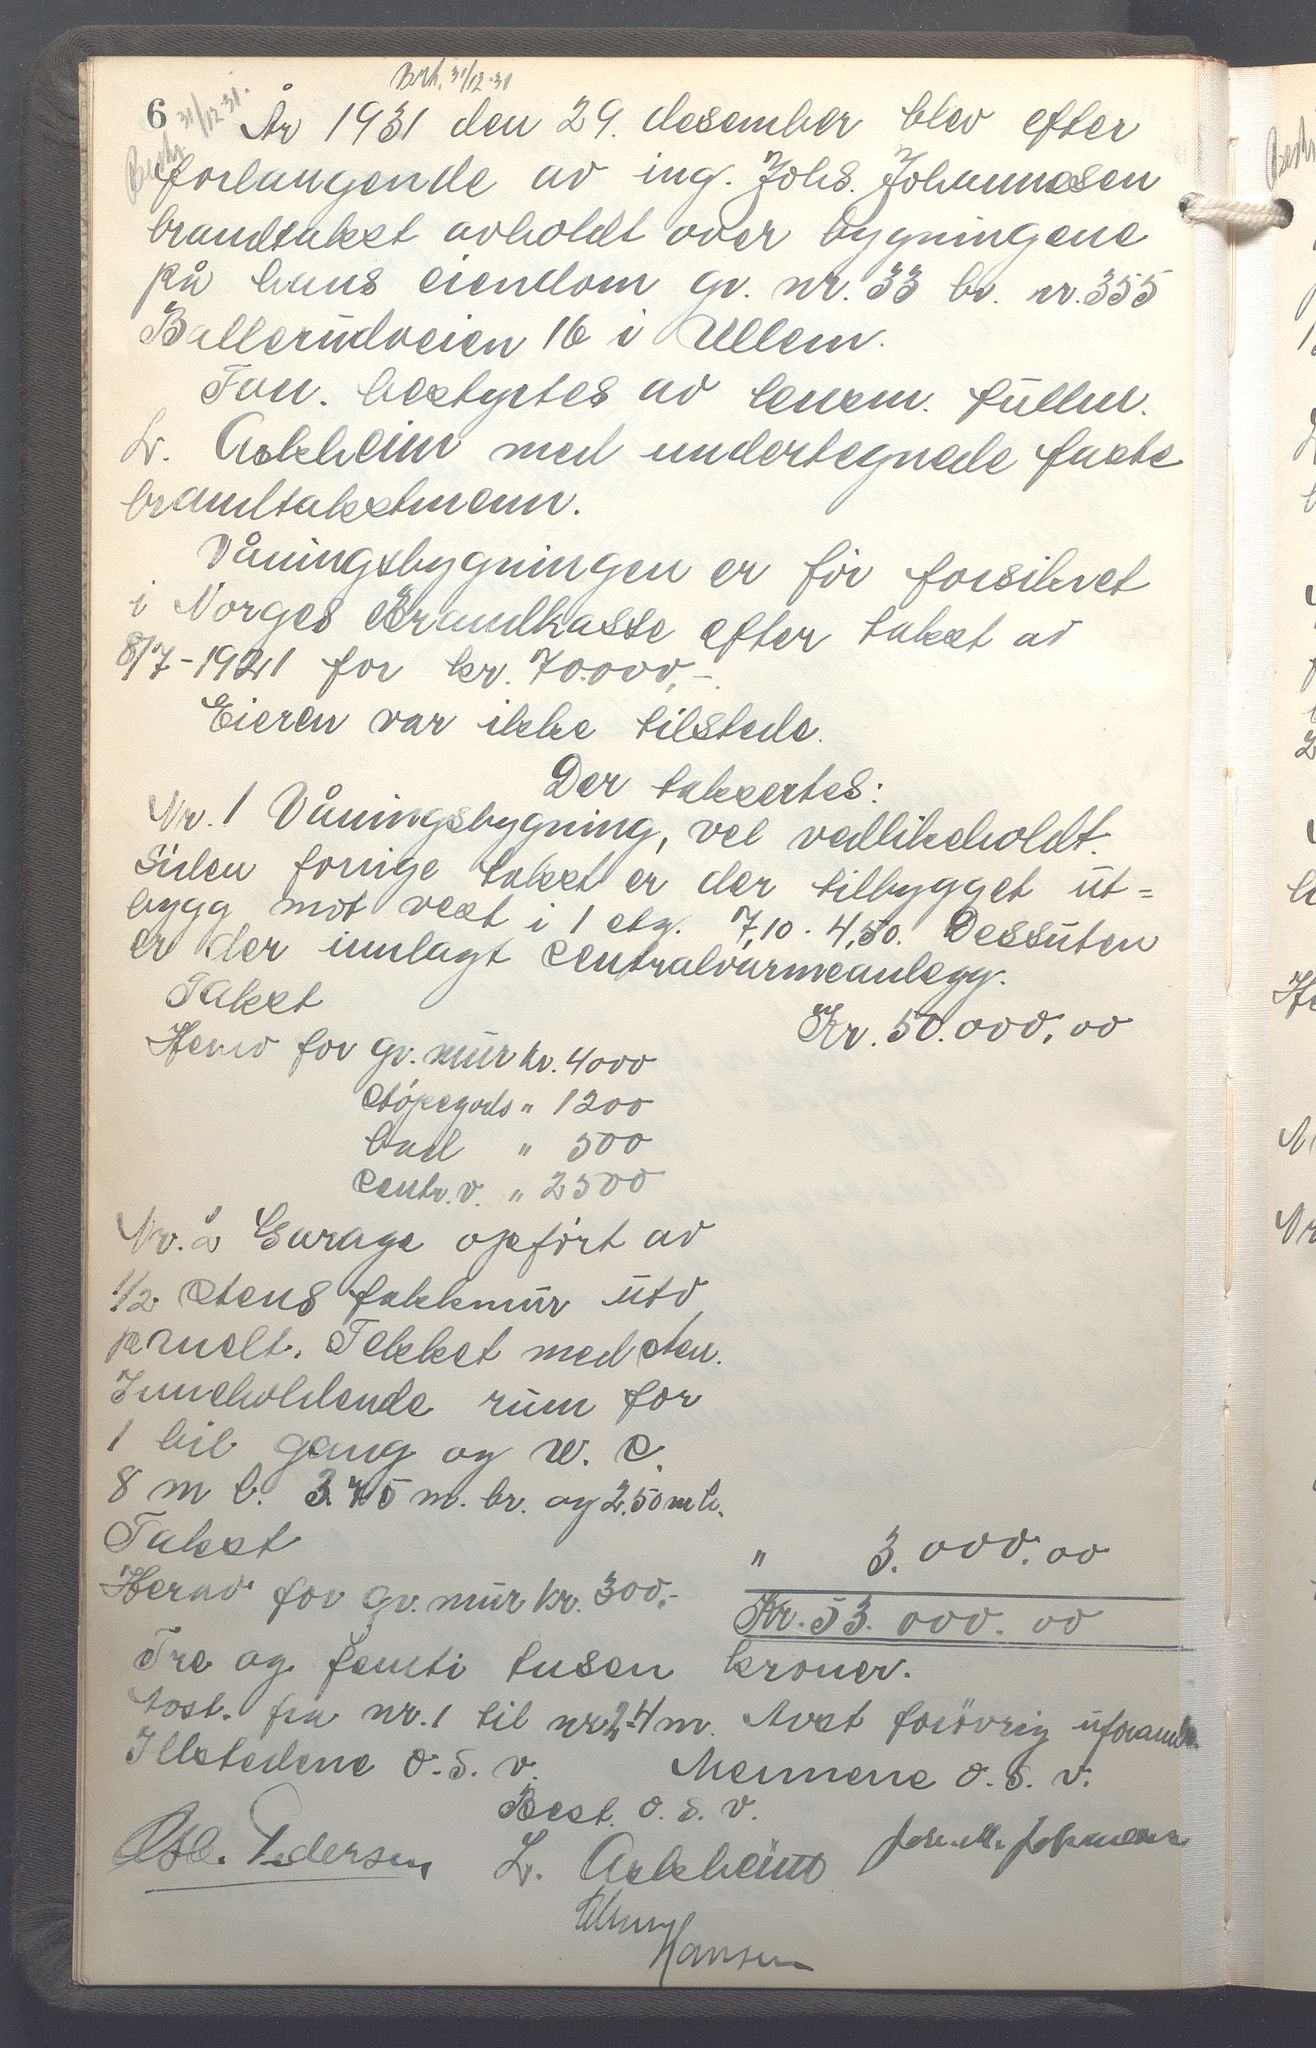 6
Besk. 31/12-31.
Besk. 31/12-31
År 1931 den 29. desember blev efter
forlangende av ing. Johs. Johannesen
brandtakst avholdt over bygningene
på hans eiendom gr. nr. 33 br. nr. 355
Ballerudveien 16 i Ullern.
Forr. bestyrtes av lensm. fullm.
L. Askheim med undertegnede faste
brandtakstmenn.
Våningsbygningen er før forsikret
i Norges Brandkasse efter takst av
8/7-1921 for kr. 70.000,-.
Eieren var ikke tilstede.
Der takertes:
Nr. 1 Våningsbygning, vel vedlikeholdt.
Siden forrige takst er der tilbygget ut=
bygg mot vest i 1 etg. 7,10 . 4,50. Dessuten
er der innlagt centralvarmeanlegg.
Takst Kr. 50.000,00
Herav for gr. mur kr. 4000
støpegods " 1200
bad " 500
centr. v. " 2500
Nr. 2 Garage opført av
1/2 stens fakkmur utv.
panelt. Tekket med sten.
Inneholdende rum for
1 bil gang og w. c.
8 m l. 3.75 m. br. og 2,50 m h.
Takst " 3.000.00
Herav for gr. mur kr. 300,-
Kr. 53.000.00
Tre og femti tusen kroner.
Avst. fra nr. 1 til nr 2 4 m. Avst forøvrig uforand.
Ildstedene o. s. v. Mennene o. s. v.
Best. o. s. v.
Pedersen L. Askheim Joh. M. Johansen
Hansen